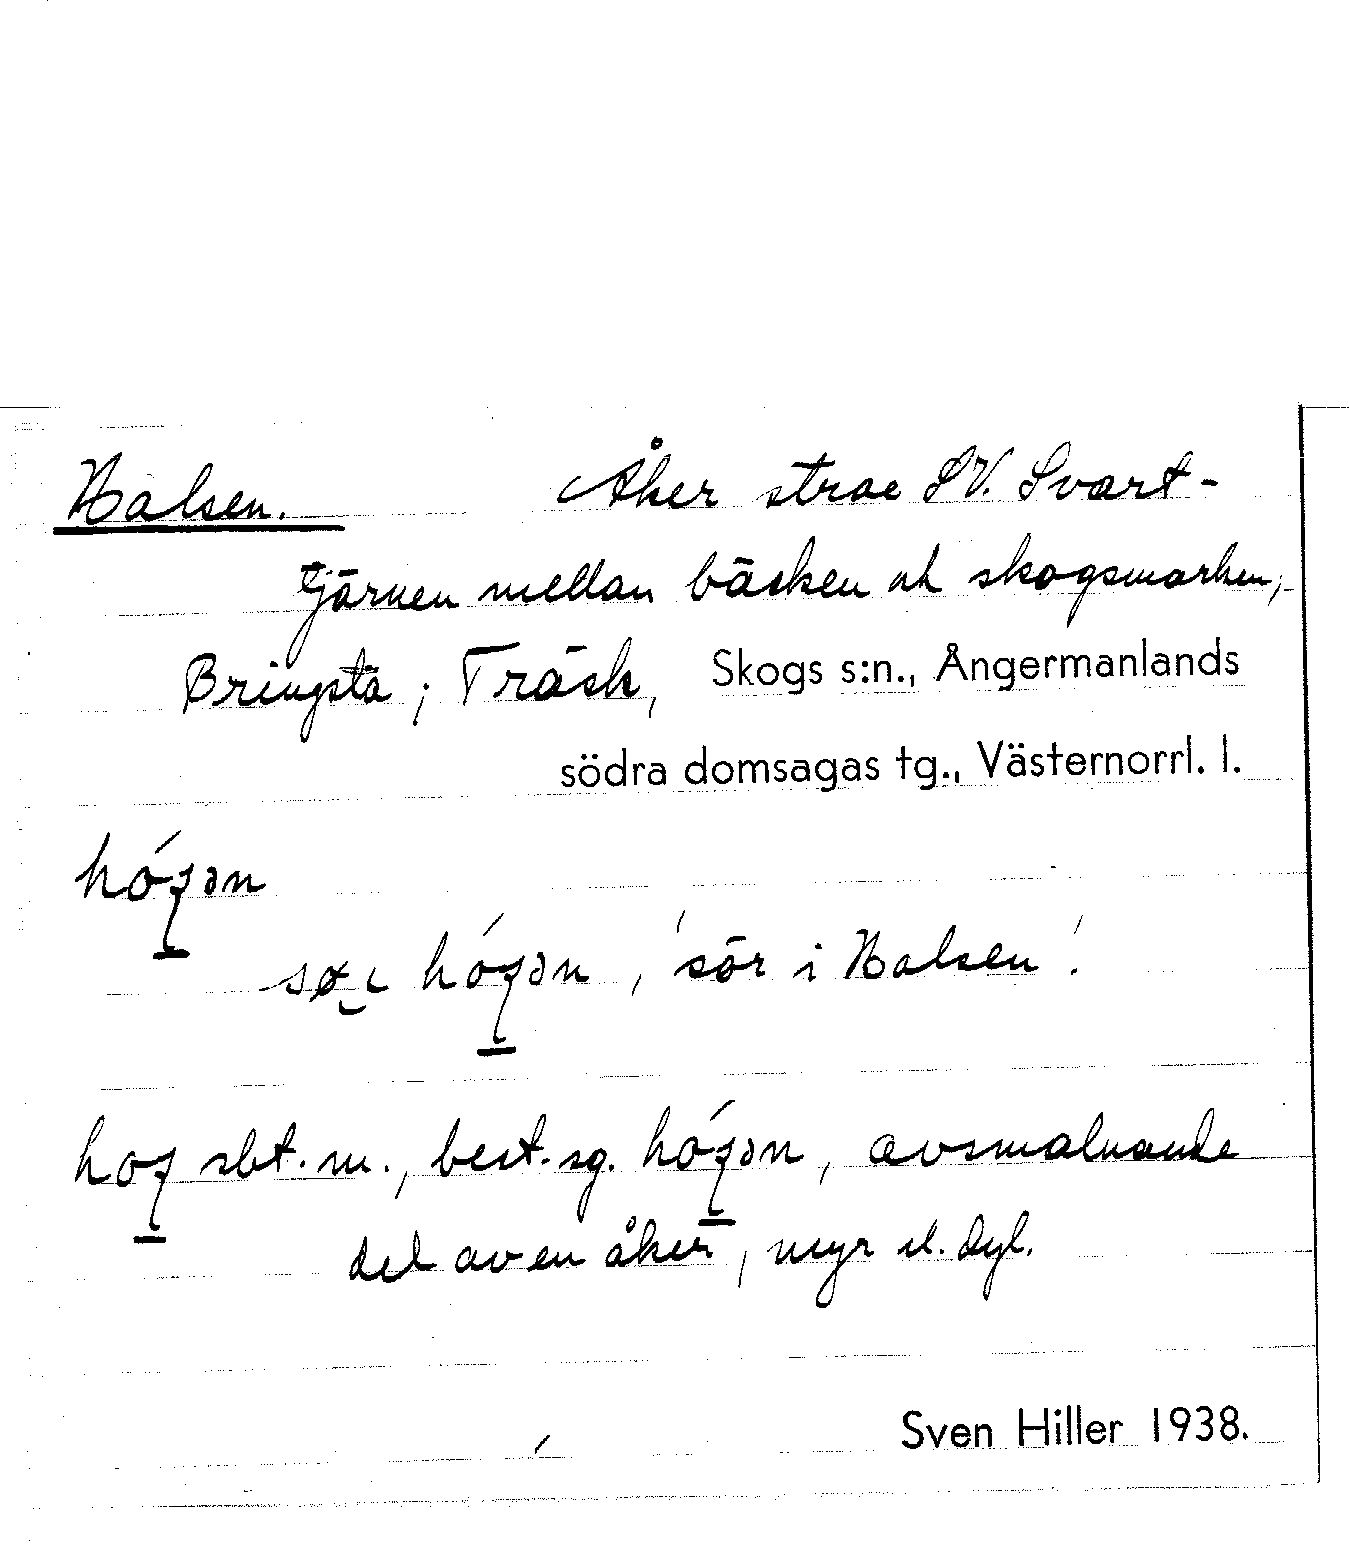 Halsen. Åker strax SV. Svart-
tjärnen mellan bäcken och skogsmarken,
Bringsta, Träsk, Skogs s:n., Ångermanlands
södra domsagas tg., Västernorrl. l.
'sör i Halsen'.
sbt. m., best. sg. avsmalnande
del av en åker, myr el. dyl.
Sven Hiller 1938.